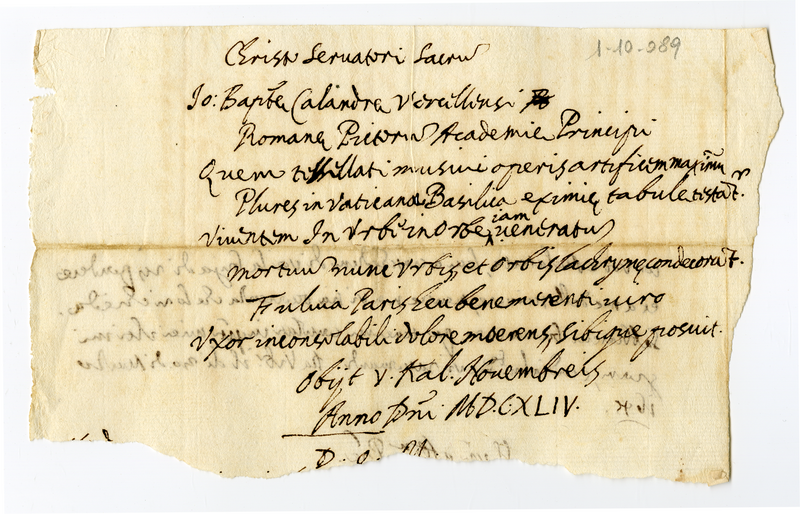 1-10-989
Christo Servatori Sacrũ
Jo: Bapt̃ę Calandrę Vercellensi
Romanę Pictorũ Academię Principi
Quem tessellati musiui operis artificem maximũ
Plures in Vaticana Basilica eximię tabulę testant̃r.
Viuentem In Vrbe in Orbe iam veneratũ
mortuũ nunc Vrbis et Orbis lachrymę condecorant̃.
Fuluia Paris heu bene merenti uiro
Vxor inconsolabili dolore moerens, sibique posuit.
Obijt V. Kal. Nouembreis
Anno Dñi MD.CXLIV.
D. O. M